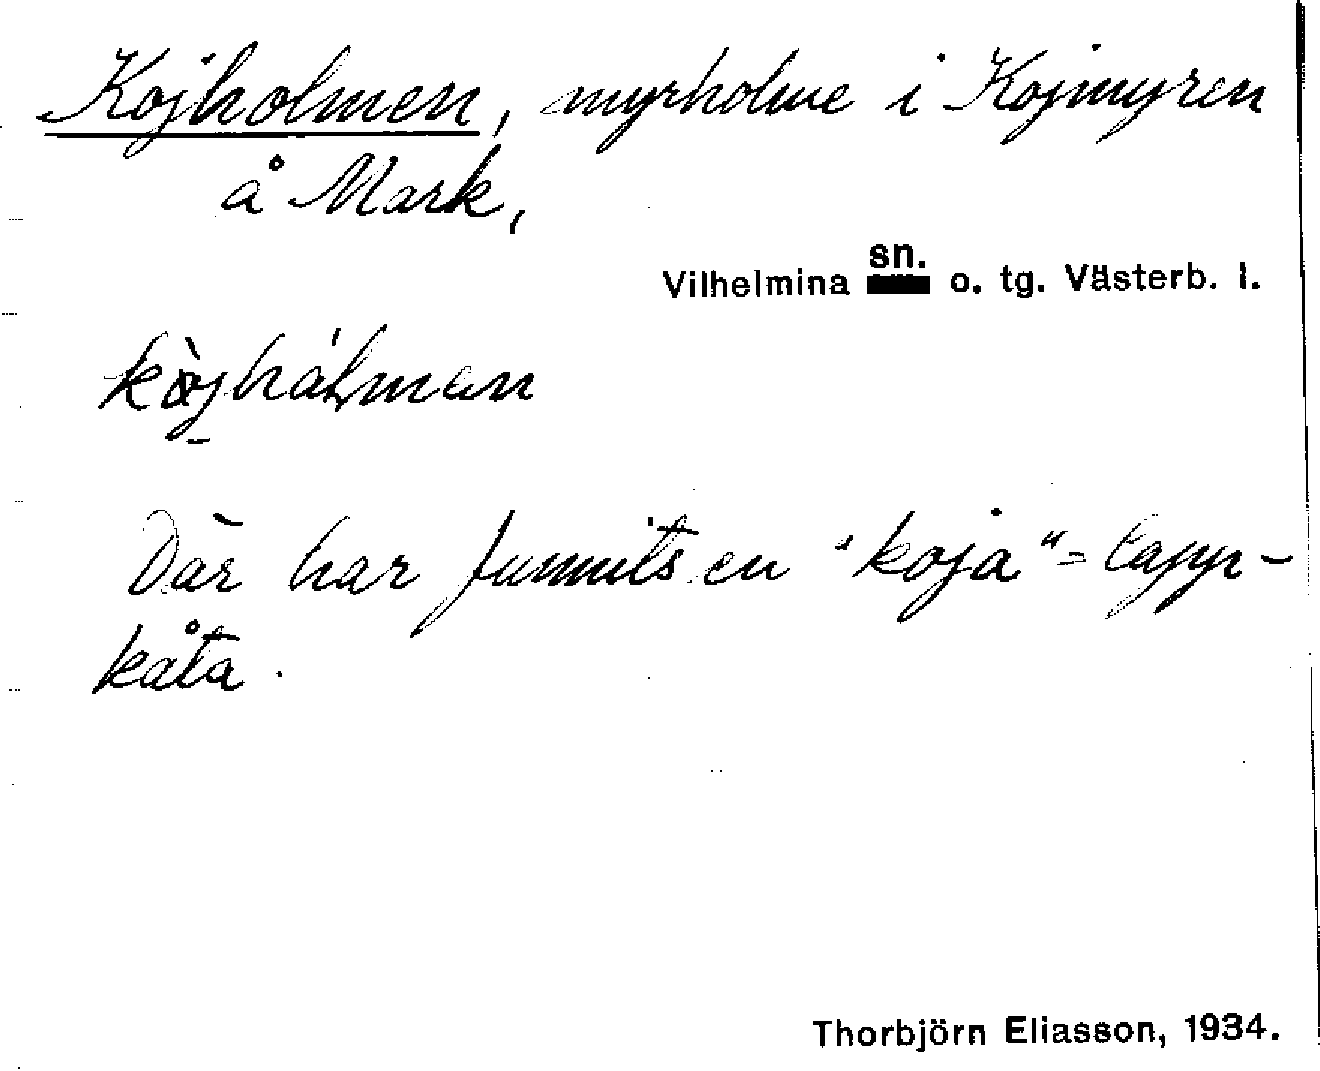 Kojholmen, myrholme i Kojmyren
å Mark,
Vilhelmina sn. o. tg. Västerb. l.
Där har funnits en "koja" = lapp-
kåta.
Thorbjörn Eliasson, 1934.